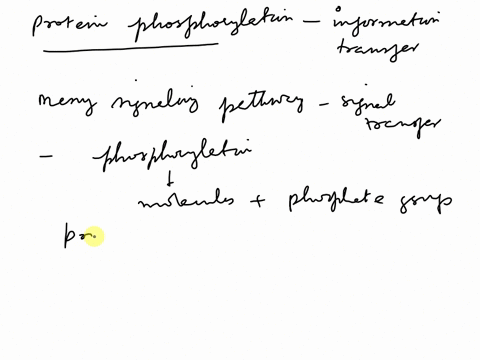 Protein phosphorylation - information
transfer
many signaling pathway - signal
transfer
- phosphorylation
↓
molecules + phosphate group
pr